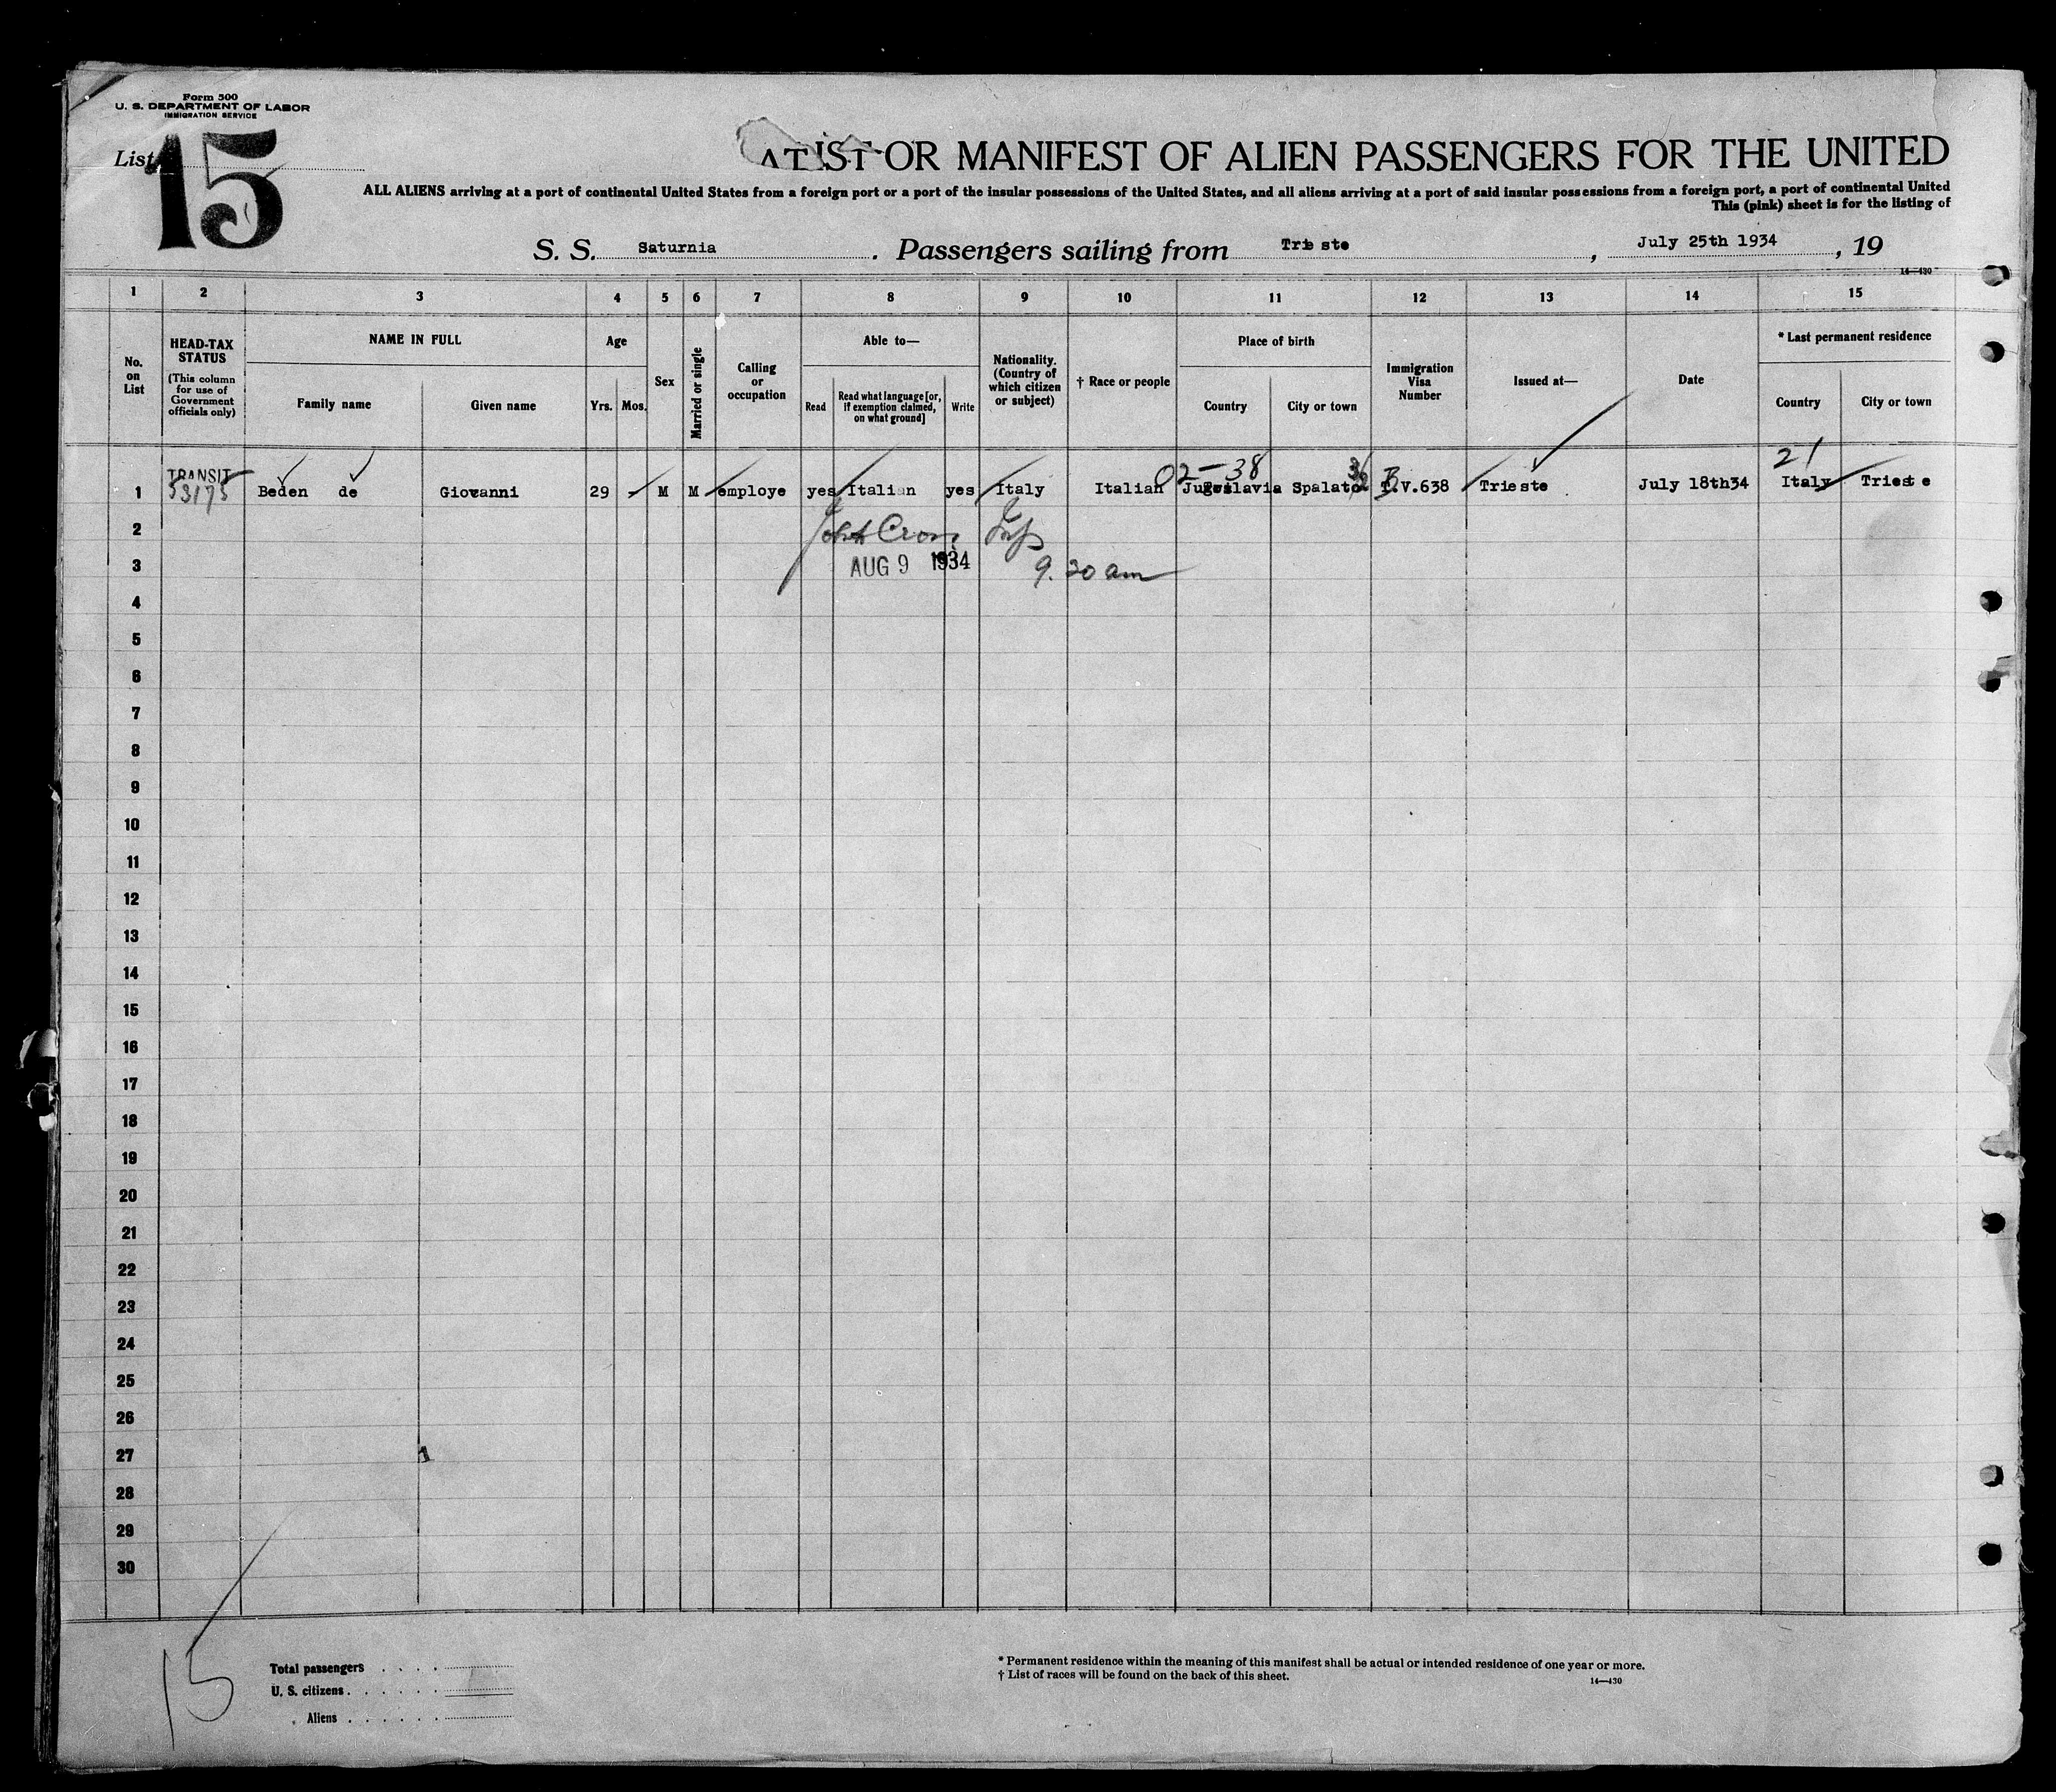 Form 500
U. S. DEPARTMENT OF LABOR
IMMIGRATION SERVICE
List 15
LIST OR MANIFEST OF ALIEN PASSENGERS FOR THE UNITED
ALL ALIENS arriving at a port of continental United States from a foreign port or a port of the insular possessions of the United States, and all aliens arriving at a port of said insular possessions from a foreign port, a port of continental United
This (pink) sheet is for the listing of
S. S. Saturnia . Passengers sailing from Trieste , July 25th 1934 , 19
14—430
1 2 3 4 5 6 7 8 9 10 11 12 13 14 15
No. on List
HEAD-TAX STATUS
(This column for use of Government officials only)
NAME IN FULL
Family name
Given name
Age
Yrs.
Mos.
Sex
Married or single
Calling or occupation
Able to—
Read
Read what language [or, if exemption claimed, on what ground]
Write
Nationality. (Country of which citizen or subject)
† Race or people
Place of birth
Country
City or town
Immigration Visa Number
Issued at—
Date
* Last permanent residence
Country
City or town
TRANSIT 02-38 21
1 53175 Beden de Giovanni 29 M M employe yes Italian yes Italy Italian Jugoslavia Spalato V.638 Trieste July 18th34 Italy Trieste
2 John
3 AUG 9 1934 9.20 am
4
5
6
7
8
9
10
11
12
13
14
15
16
17
18
19
20
21
22
23
24
25
26
27
28
29
30
15
Total passengers . . . .
U. S. citizens . . . . . .
Aliens . . . . . .
* Permanent residence within the meaning of this manifest shall be actual or intended residence of one year or more.
† List of races will be found on the back of this sheet.
14—430